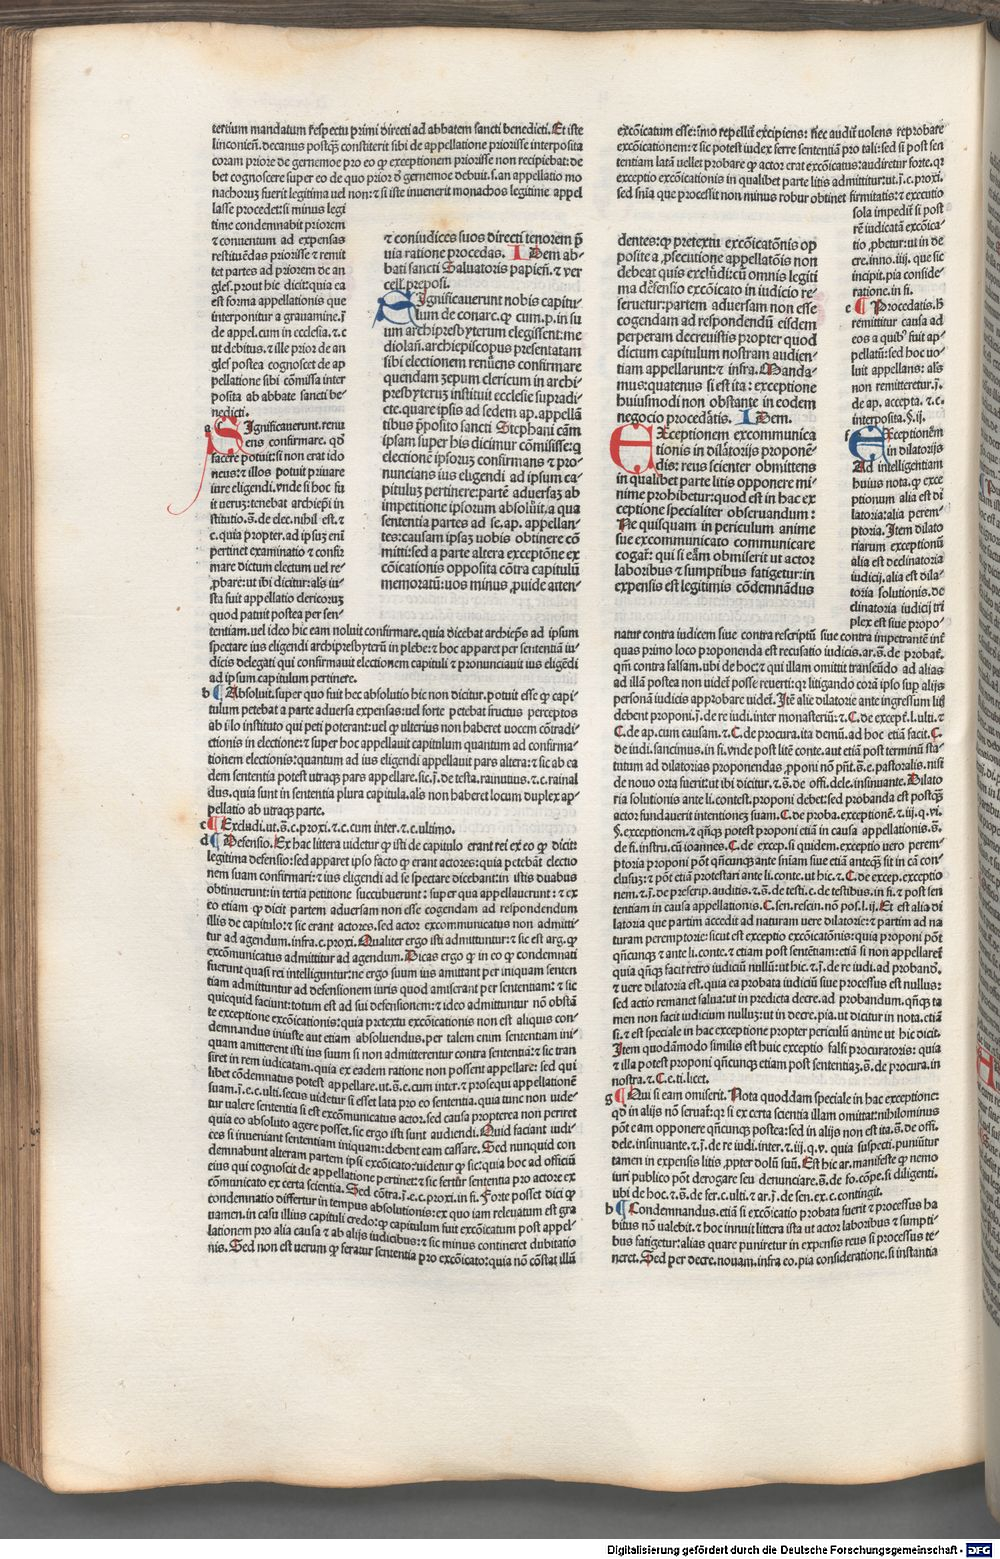 tertium mandatum respectu primi directi ad abbatem sancti benedicti. Et iste
linconieñ. decanus postqȝ constiterit sibi de appellatione priorisse interposita
coram priore de gernemoe pro eo ꝙ exceptionem priorisse non recipiebat: de
bet cognoscere super eo de quo prior ō gernemoe debuit. s. an appellatio mo
nachorum fuerit legitima uel non: ⁊ si iste inuenerit monachos legitime appel
lasse procedet: si minus legi
time condemnabit priorem
⁊ conuentum ad expensas
restituēdas priorisse ⁊ remit
tet partes ad priorem de an
gles. prout hic dicit: quia ea
est forma appellationis que
interponitur a grauamine. ī
de appel. cum in ecclesia. ⁊. c
ut debitus. ⁊ ille prior de an
gles postea cognoscet de ap
pellatione sibi cōmissa inter
posita ab abbate sancti be-
nedicti.
a Significauerunt. renu
ens confirmare. qđ
facere potuit: si non erat ido
neus: ⁊ illos potuit priuare
iure eligendi. vnde si hoc fu
it uerum: tenebat archiepi in
stitutio. s̄. de elec. nihil est. ⁊
c. quia propter. ad ipsum em̄
pertinet examinatio ⁊ confir
mare dictum electum uel re-
ꝓbare: ut ibi dicitur: als iu-
sta fuit appellatio clericorum
quod patuit postea per sen-
tentiam. uel ideo hic eam noluit confirmare. quia dicebat archiep̄s ad ipsum
spectare ius eligendi archipresbyterū in plebe: ⁊ hoc apparet per sententiā iu-
dicis delegati qui confirmauit electionem capituli ⁊ pronunciauit ius eligēdi
ad ipsum capitulum pertinere.
b ¶ Absoluit. super quo fuit hec absolutio hic non dicitur. potuit esse ꝙ capi-
tulum petebat a parte aduersa expensas: uel forte petebat fructus perceptos
ab illo instituto qui peti poterant: uel ꝙ ulterius non haberet uocem cōtradi-
ctionis in electione: ⁊ super hoc appellauit capitulum quantum ad confirma-
tionem electionis: quantum ad ius eligendi appellauit pars altera: ⁊ sic ab ea
dem sententia potest utraqȝ pars appellare. sic. ī. de testa. rainutius. ⁊. c. rainal
dus. quia sunt in sententia plura capitula. als non haberet locum duplex ap-
pellatio ab utraqȝ parte.
c ¶ Excludi. ut. s̄. c. proxi. ⁊. c. cum inter. ⁊. c. ultimo.
d ¶ Defensio. Ex hac littera uidetur ꝙ isti de capitulo erant rei ex eo ꝙ dicit:
legitima defensio: sed apparet ipso facto ꝙ erant actores: quia petebāt electio
nem suam confirmari: ⁊ ius eligendi ad se spectare dicebant: in istis duabus
obtinuerunt: in tertia petitione succubuerunt: super qua appellauerunt: ⁊ ex
eo etiam ꝙ dicit partem aduersam non esse cogendam ad respondendum
illis de capitulo: ⁊ sic erant actores. sed actor excommunicatus non admitti-
tur ad agendum. infra. c. proxi. Qualiter ergo isti admittuntur: ⁊ sic est arg. ꝙ
excōmunicatus admittitur ad agendum. Dicas ergo ꝙ in eo ꝙ condemnati
fuerunt quasi rei intelliguntur: ne ergo suum ius amittant per iniquam senten
tiam admittuntur ad defensionem iuris quod amiserant per sententiam: ⁊ sic
quicquid faciunt: totum est ad sui defensionem: ⁊ ideo admittuntur nō obstā
te exceptione excōicationis: quia pretextu excōicationis non est aliquis con-
demnandus iniuste aut etiam absoluendus. per talem enim sententiam ini-
quam amitterent isti ius suum si non admitterentur contra sententiā: ⁊ sic tran
siret in rem iudicatam. quia ex eadem ratione non possent appellare: sed qui
libet cōdemnatus potest appellare. ut. s̄. c. cum inter. ⁊ prosequi appellationē
suam. ī. e. c. ulti. secus uidetur si esset lata pro eo sententia. quia tunc non uide-
tur ualere sententia si est excōmunicatus actor. sed causa propterea non periret
quia eo absoluto agere posset. sic ergo isti sunt audiendi. Quid faciant iudi-
ces si inueniant sententiam iniquam: debent eam cassare. Sed nunquid con
demnabunt alteram partem ipsi excōicato: uidetur ꝙ sic: quia hoc ad officiū
eius qui cognoscit de appellatione pertinet: ⁊ sic fertur sententia pro actore ex
cōmunicato ex certa scientia. Sed cōtra. ī. e. c. proxi. in fi. Forte posset dici ꝙ
condemnatio differtur in tempus absolutionis: ex quo iam releuatum est gra
uamen. in casu illius capituli credo: ꝙ capitulum fuit excōicatum post appel-
lationem pro alia causa ⁊ ab alijs iudicibus: ⁊ sic minus contineret dubitatio
nis. Sed non est uerum ꝙ feratur sententia pro excōicato: quia nō cōstat illū
⁊ coniudices suos directi tenorem p̄
uia ratione procedas. IDem ab-
bati sancti Saluatoris papieñ. ⁊ ver
cell. preposi.
SIgnificauerunt nobis capitu-
lum de conarc. ꝙ cum. p. in su
um archipresbyterum elegissent: me
diolañ. archiepiscopus presentatam
sibi electionem renuens confirmare
quendam ȝepum clericum in archi-
presbyterum instituit ecclesie supradi-
cte. quare ipsis ad sedem ap. appellā
tibus p̄posito sancti Stephani cām
ipsam super his dicimur cōmisisse: ꝗ
electionē ipsorum confirmans ⁊ pro-
nuncians ius eligendi ad ipsum ca-
pitulum pertinere: partē aduersam ab
impetitione ipsorum absoluit. a qua
sententia partes ad se. ap. appellan-
tes: causam ipsam uobis obtinere cō
mitti: sed a parte altera exceptōne ex
cōicationis opposita cōtra capitulū
memoratū: uos minus ꝓuide atten-
dentes: ꝙ pretextu excōicatōnis op
posite a ꝓsecutione appellatōis non
debeat quis excludi: cū omnis legiti
ma defensio excōicato in iudicio re-
seruetur: partem aduersam non esse
cogendam ad respondendū eisdem
perperam decreuistis propter quod
dictum capitulum nostram audien-
tiam appellarunt: ⁊ infra. Manda-
mus: quatenus si est ita: exceptione
huiusmodi non obstante in eodem
negocio procedatis. IDem.
EXceptionem excommunica
tionis in dilatorijs proponē-
dis: reus scienter obmittens
in qualibet parte litis opponere mi-
nime prohibetur: quod est in hac ex
ceptione specialiter obseruandum:
Ne quisquam in periculum anime
sue excommunicato communicare
cogat: qui si eam obmiserit ut actor
laboribus ⁊ sumptibus fatigetur: in
expensis est legitimis cōdemnādus
excōicatum esse: imo repellit excipiens: nec audit uolens reprobare
excōicationem: ⁊ sic potest iudex ferre sententiā pro tali: sed si post sen
tentiam latā uellet probare ꝙ actor erat excōicatus: audiretur forte. qꝛ
exceptio excōicationis in qualibet parte litis admittitur: ut. ī. c. proxi.
sed snīa que processit non minus robur obtinet firmitatis: ⁊ executio
sola impedit si post
rē iudicatā excōica-
tio ꝓbetur: ut in de
cre. inno. iiij. que sic
incipit. pia conside-
ratione. in fi.
e ¶ Procedatis. H
remittitur causa ad
eos a quibꝰ fuit ap-
pellatū: sed hoc uo-
luit appellans: als
non remitteretur. ī.
de ap. accepta. ⁊. c.
interposita. §. ij.
f Exceptionēm
in dilatorijs
Ad intelligentiam
huius nota. ꝙ exce
ptionum alia est di
latoria: alia perem-
ptoria. Item dilato
riarum exceptionū
alia est declinatoria
iudicij. alia est dila-
toria solutionis. de
clinatoria iudicij tri
plex est siue propo-
natur contra iudicem siue contra rescriptū siue contra impetrantē int̄
quas primo loco proponenda est recusatio iudicis. ar. s̄. de probat̄.
qm̄ contra falsam. ubi de hoc: ⁊ qui illam omittit transeūdo ad alias
ad illā postea non uidet̄ posse reuerti: qꝛ litigando corā ipso sup alijs
personā iudicis approbare uidet̄. Itē alie dilatorie ante ingressum litis
debent proponi. ī. de re iudi. inter monasteriū: ⁊. C. de except. l. ulti. ⁊
C. de ap. cum causam. ⁊. C. de procura. ita demū. ad hoc etiā facit. C.
de iudi. sancimus. in fi. vnde post litē conte. aut etiā post terminū sta-
tutum ad dilatorias proponendas ꝓponi nō pn̄t. s̄. e. pastoralis. nisi
de nouo orta fuerit: ut ibi dicitur. ⁊. s̄. de offi. dele. insinuante. Dilato
ria solutionis ante li. contest. proponi debet: sed probanda est postqȝ
actor fundauerit intentionē suam. C. de proba. exceptionē. ⁊. iij. q. vi.
§. exceptionem. ⁊ qn̄qȝ potest proponi etiā in causa appellationis. s̄.
de fi. instru. cū ioannes. C. de excep. si quidem. exceptio uero perem-
ptoria proponi pōt qn̄cunqȝ ante snīam siue etiā anteqȝ sit in cā con-
clusum: ⁊ pōt etiā protestari ante li. conte. ut hic. ⁊. C. de excep. exceptio
nem. ⁊. ī. de prescrip. auditis. ⁊. s̄. de testi. c. de testibus. in fi. ⁊ post sen
tentiam in causa appellationis. C. sen. rescin. nō pos. l. ij. Et est alia di
latoria que partim accedit ad naturam uere dilatorie: ⁊ partim ad na
turam peremptorie: sicut est exceptio excōicatōnis: quia proponi pōt
qn̄cunqȝ ⁊ ante li. conte. ⁊ etiam post sentētiam: etiā si non appellaret
quia qn̄qȝ facit retro iudiciū nullū: ut hic. ⁊. ī. de re iudi. ad probandū.
⁊ uere dilatoria est. quia ea probata iudiciū siue processus est nullus:
sed actio remanet salua: ut in predicta decre. ad probandum. qn̄qȝ ta
men non facit iudicium nullum: ut in decre. pia. ut dicitur in nota. etiā
si. ⁊ est speciale in hac exceptione propter periculū anime ut hic dicit.
Item quodāmodo similis est huic exceptio falsi procuratoris: quia
⁊ illa potest proponi qn̄cunqȝ etiam post sententiam. s̄. de procura. in
nostra. ⁊. C. e. ti. licet.
g ¶ Qui si eam omiserit. Nota quoddam speciale in hac exceptione:
qđ in alijs nō seruat̄: qꝛ si ex certa scientia illam omittat: nihilominus
pōt eam opponere qn̄cunqȝ postea: sed in alijs non est ita. s̄. de offi.
dele. insinuante. ⁊. ī. de re iudi. inter. ⁊. iij. q. v. quia suspecti. puniūtur
tamen in expensis litis ꝓpter dolū suū. Est hic ar. manifeste ꝙ nemo
iuri publico pōt derogare seu denunciare. s̄. de fo. cōpe. si diligenti.
ubi de hoc. ⁊. s̄. de fer. c. ulti. ⁊ ar. ī. de sen. ex. c. contingit.
h ¶ Condemnandus. etiā si excōicatio probata fuerit ⁊ processus ha
bitus nō ualebit. ⁊ hoc innuit littera ista ut actor laboribus ⁊ sumpti-
bus fatigetur: alias quare puniretur in expensis reus si processus te-
neret. Sed per decre. nouam. infra eo. pia consideratione. si instantia
Digitalisierung gefördert durch die Deutsche Forschungsgemeinschaft - DFG